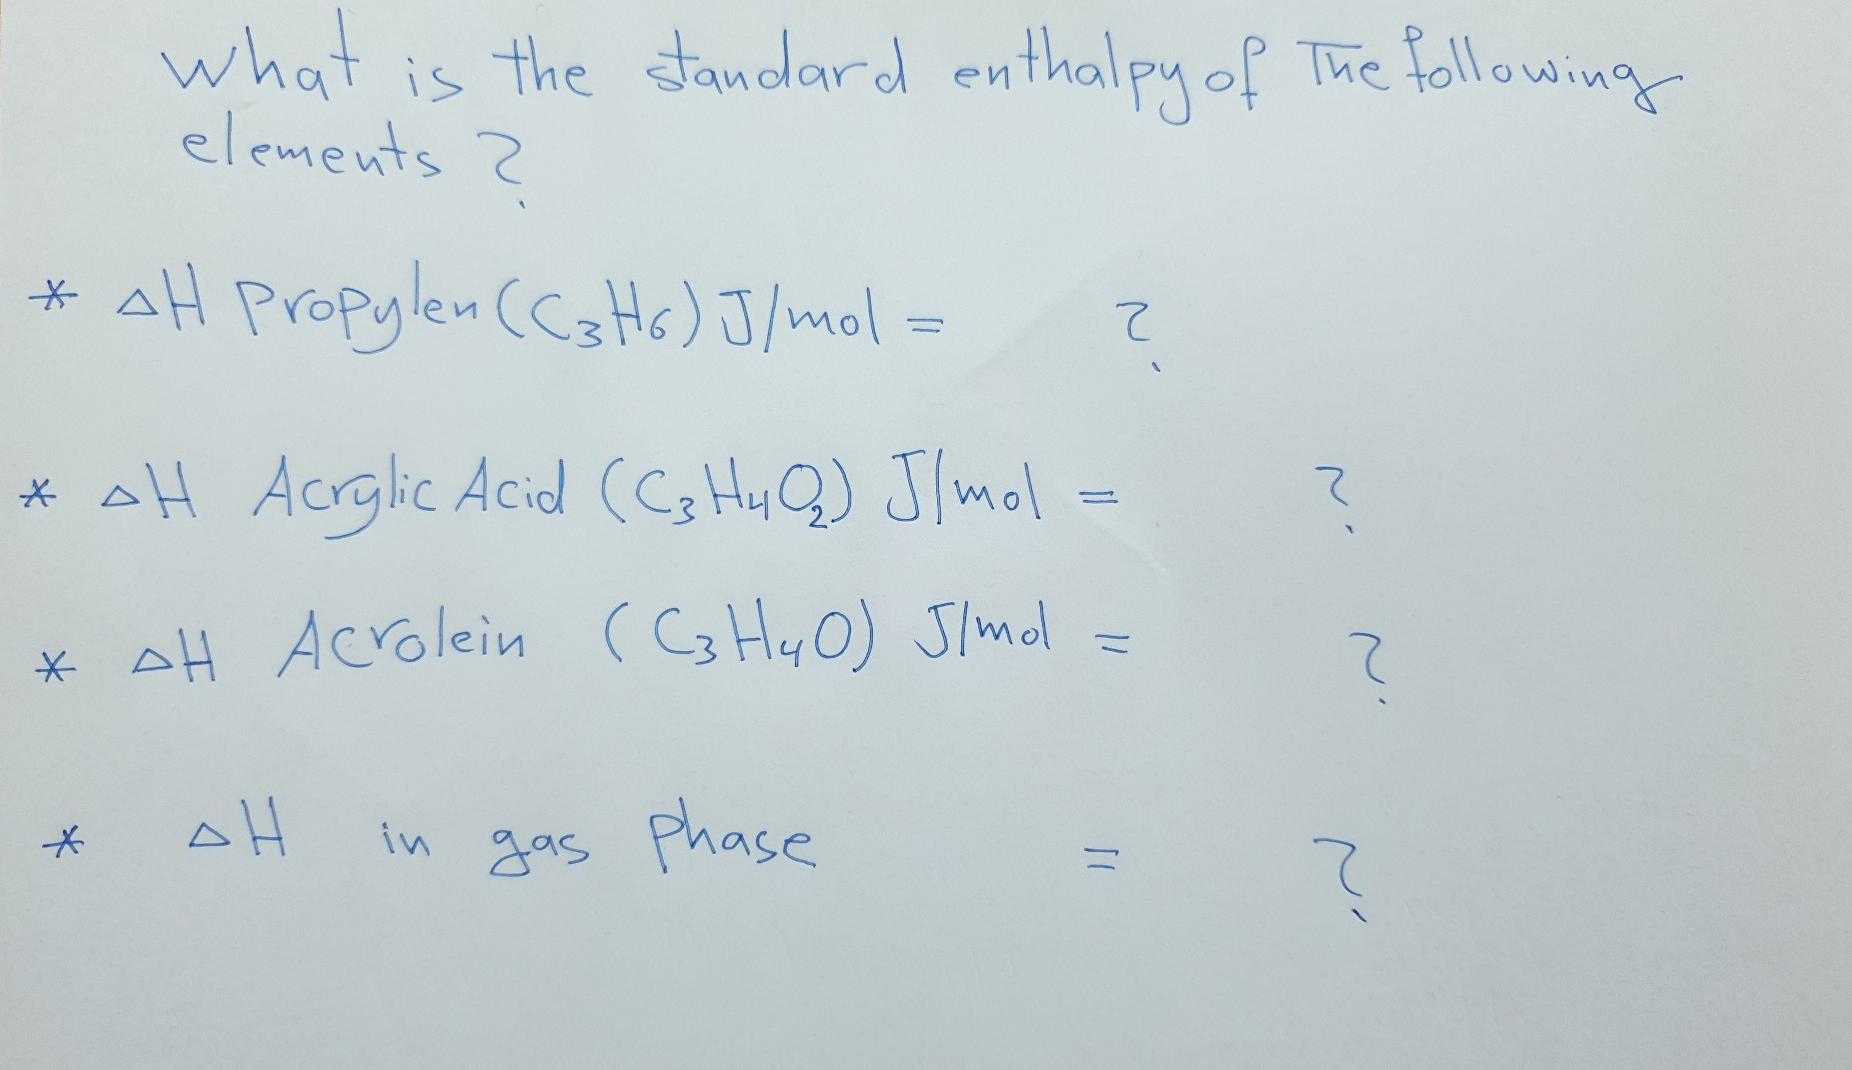 what is the standard enthalpy of The following
elements ?
* ΔH Propylen (C₃H₆) J/mol = ?
* ΔH Acrylic Acid (C₃H₄O₂) J/mol = ?
* ΔH Acrolein (C₃H₄O) J/mol = ?
* ΔH in gas phase = ?